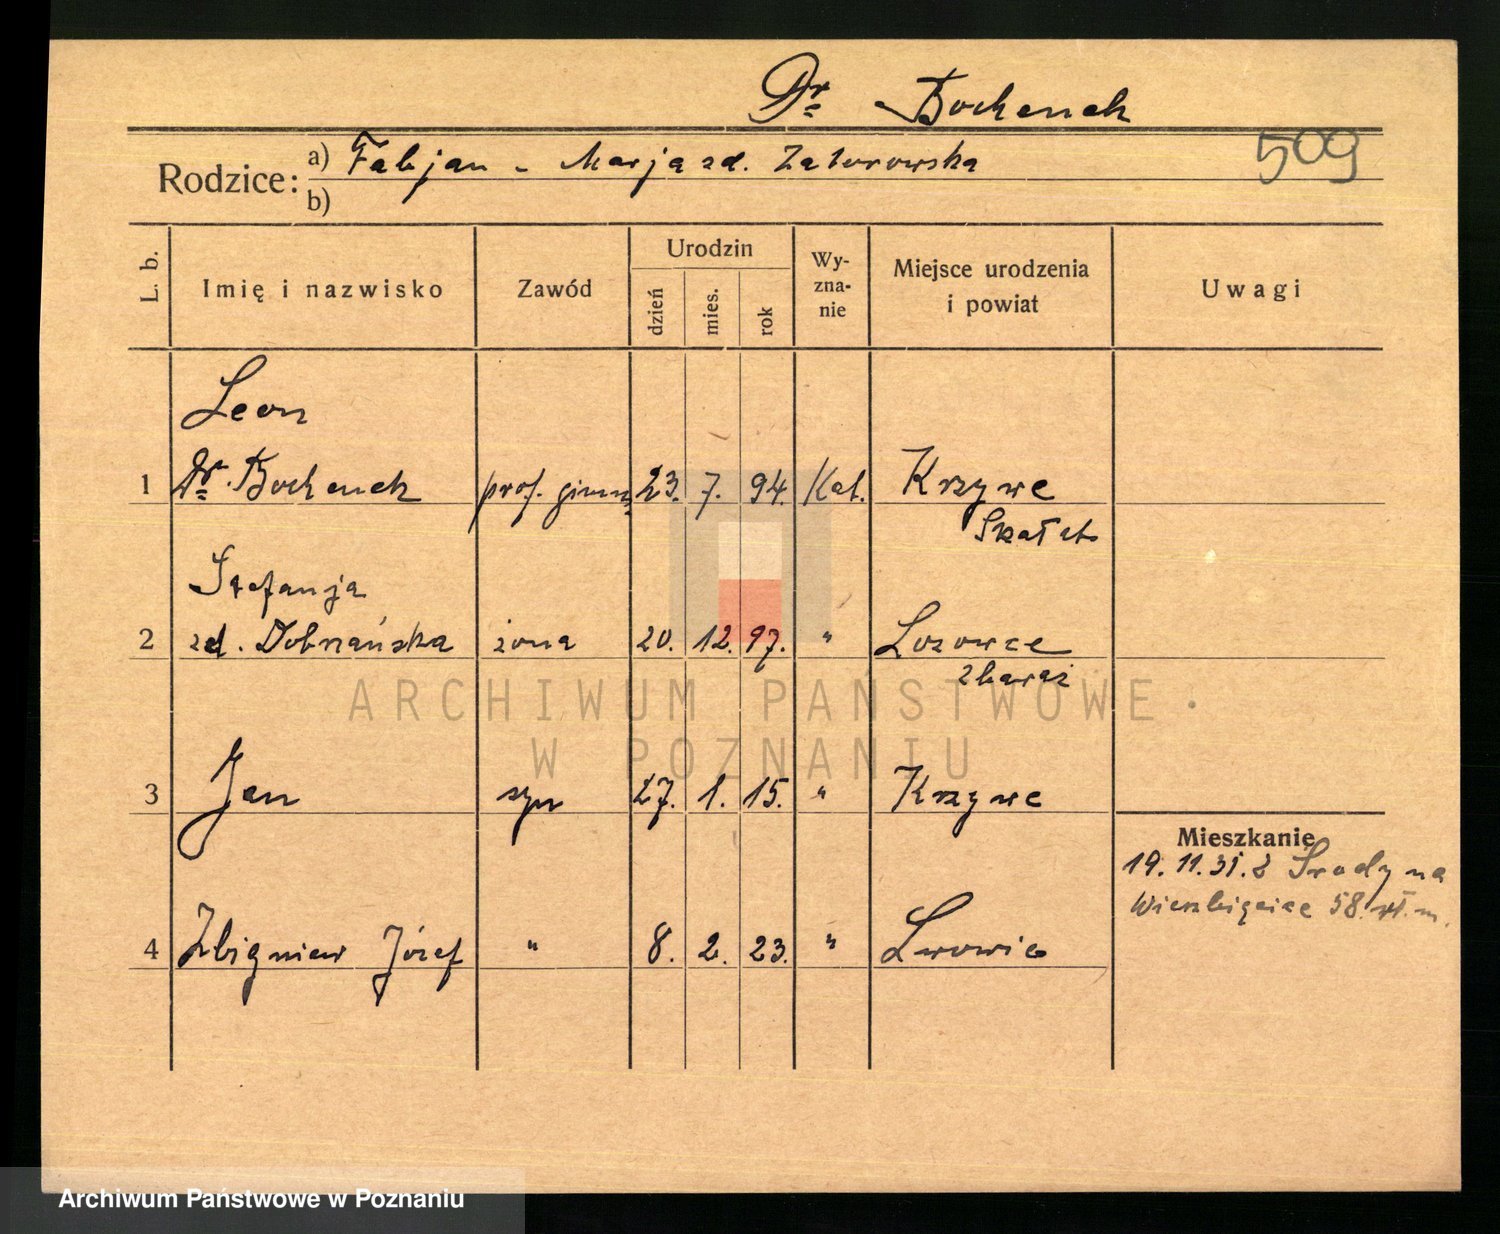 Dr Bochenek
509
Rodzice: a) Fabjan - Marja zd. Zaturowska
b)
L. b. Imię i nazwisko Zawód Urodzin dzień mies. rok Wyznanie Miejsce urodzenia i powiat Uwagi
Leon
1 Dr. Bochenek prof. gimn. 23. 7. 94. Kat. Krzywe
Skałat
Stefanja
2 zd. Dobrzańska żona 20. 12. 97. " Łozowce
Zbaraż
3 Jan syn 27. 1. 15. " Krzywe
Mieszkanie
19. 11. 31. z Środy na
Wierzbięcice 58. m.
4 Zbigniew Józef " 8. 2. 23. " Lwowie
ARCHIWUM PAŃSTWOWE
W POZNANIU
Archiwum Państwowe w Poznaniu